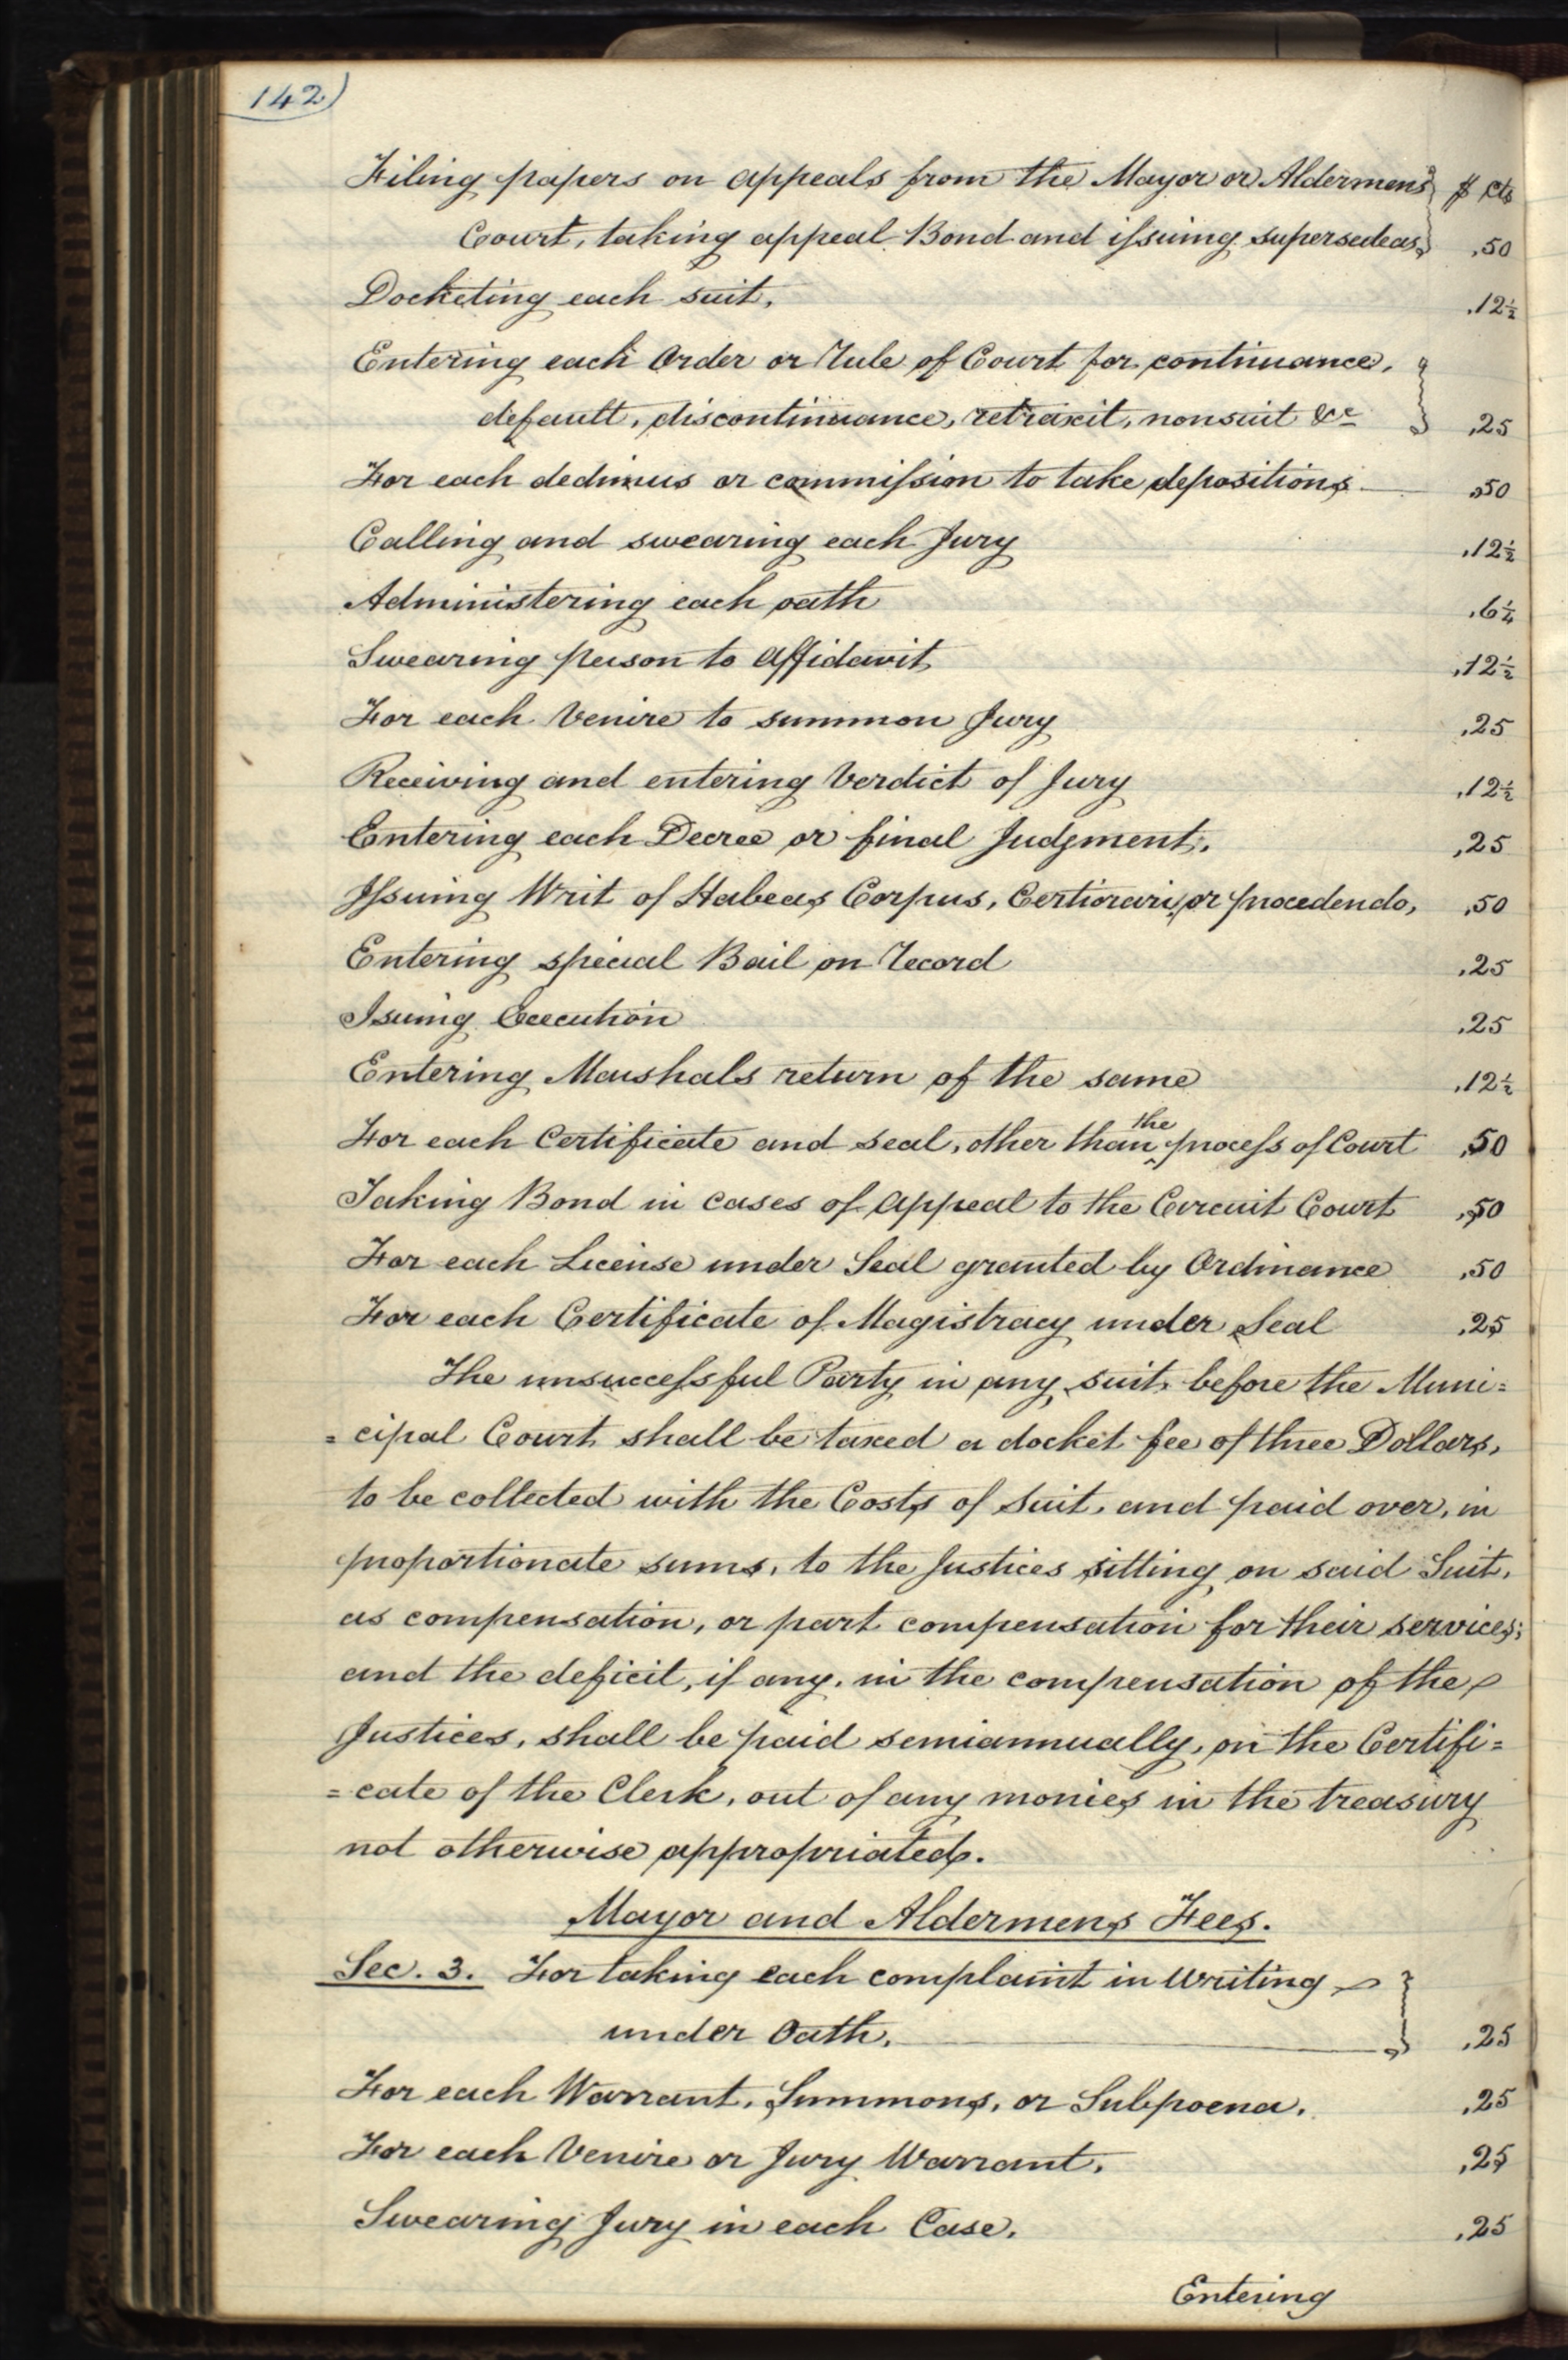 142)
Filing papers on appeals from the Mayor or Aldermens $ cts
Court, taking appeal Bond and issuing supersedeas, .50
Docketing each suit, .12½
Entering each Order or Rule of Court for continuance,
default, discontinuance, retraxit, nonsuit &c .25
For each dedimus or commission to take depositions .50
Calling and swearing each Jury .12½
Administering each oath .6¼
Swearing person to affidavit .12½
For each Venire to summon Jury .25
Receiving and entering Verdict of Jury .12½
Entering each Decree or final Judgment. .25
Issuing Writ of Habeas Corpus, Certiorari, or procedendo, .50
Entering special Bail on Record .25
Isuing Execution .25
Entering Marshals return of the same .12½
For each Certificate and seal, other than ^the process of Court .50
Taking Bond in cases of Appeal to the Circuit Court .50
For each License under Seal granted by Ordinance .50
For each Certificate of Magistracy under Seal .25
The unsuccessful Party in any suit before the Muni=
=cipal Court shall be taxed a docket fee of three Dollars,
to be collected with the Costs of Suit, and paid over, in
proportionate sums, to the Justices sitting on said Suit,
as compensation, or part compensation for their services;
and the deficit, if any, in the compensation of the
Justices, shall be paid semiannually, on the Certifi=
=cate of the Clerk, out of any monies in the treasury
not otherwise appropriated.
Mayor and Aldermens Fees.
Sec. 3. For taking each complaint in Writing
under Oath. .25
For each Warrant, Summons, or Subpoena. .25
For each Venire or Jury Warrant. .25
Swearing Jury in each Case. .25
Entering